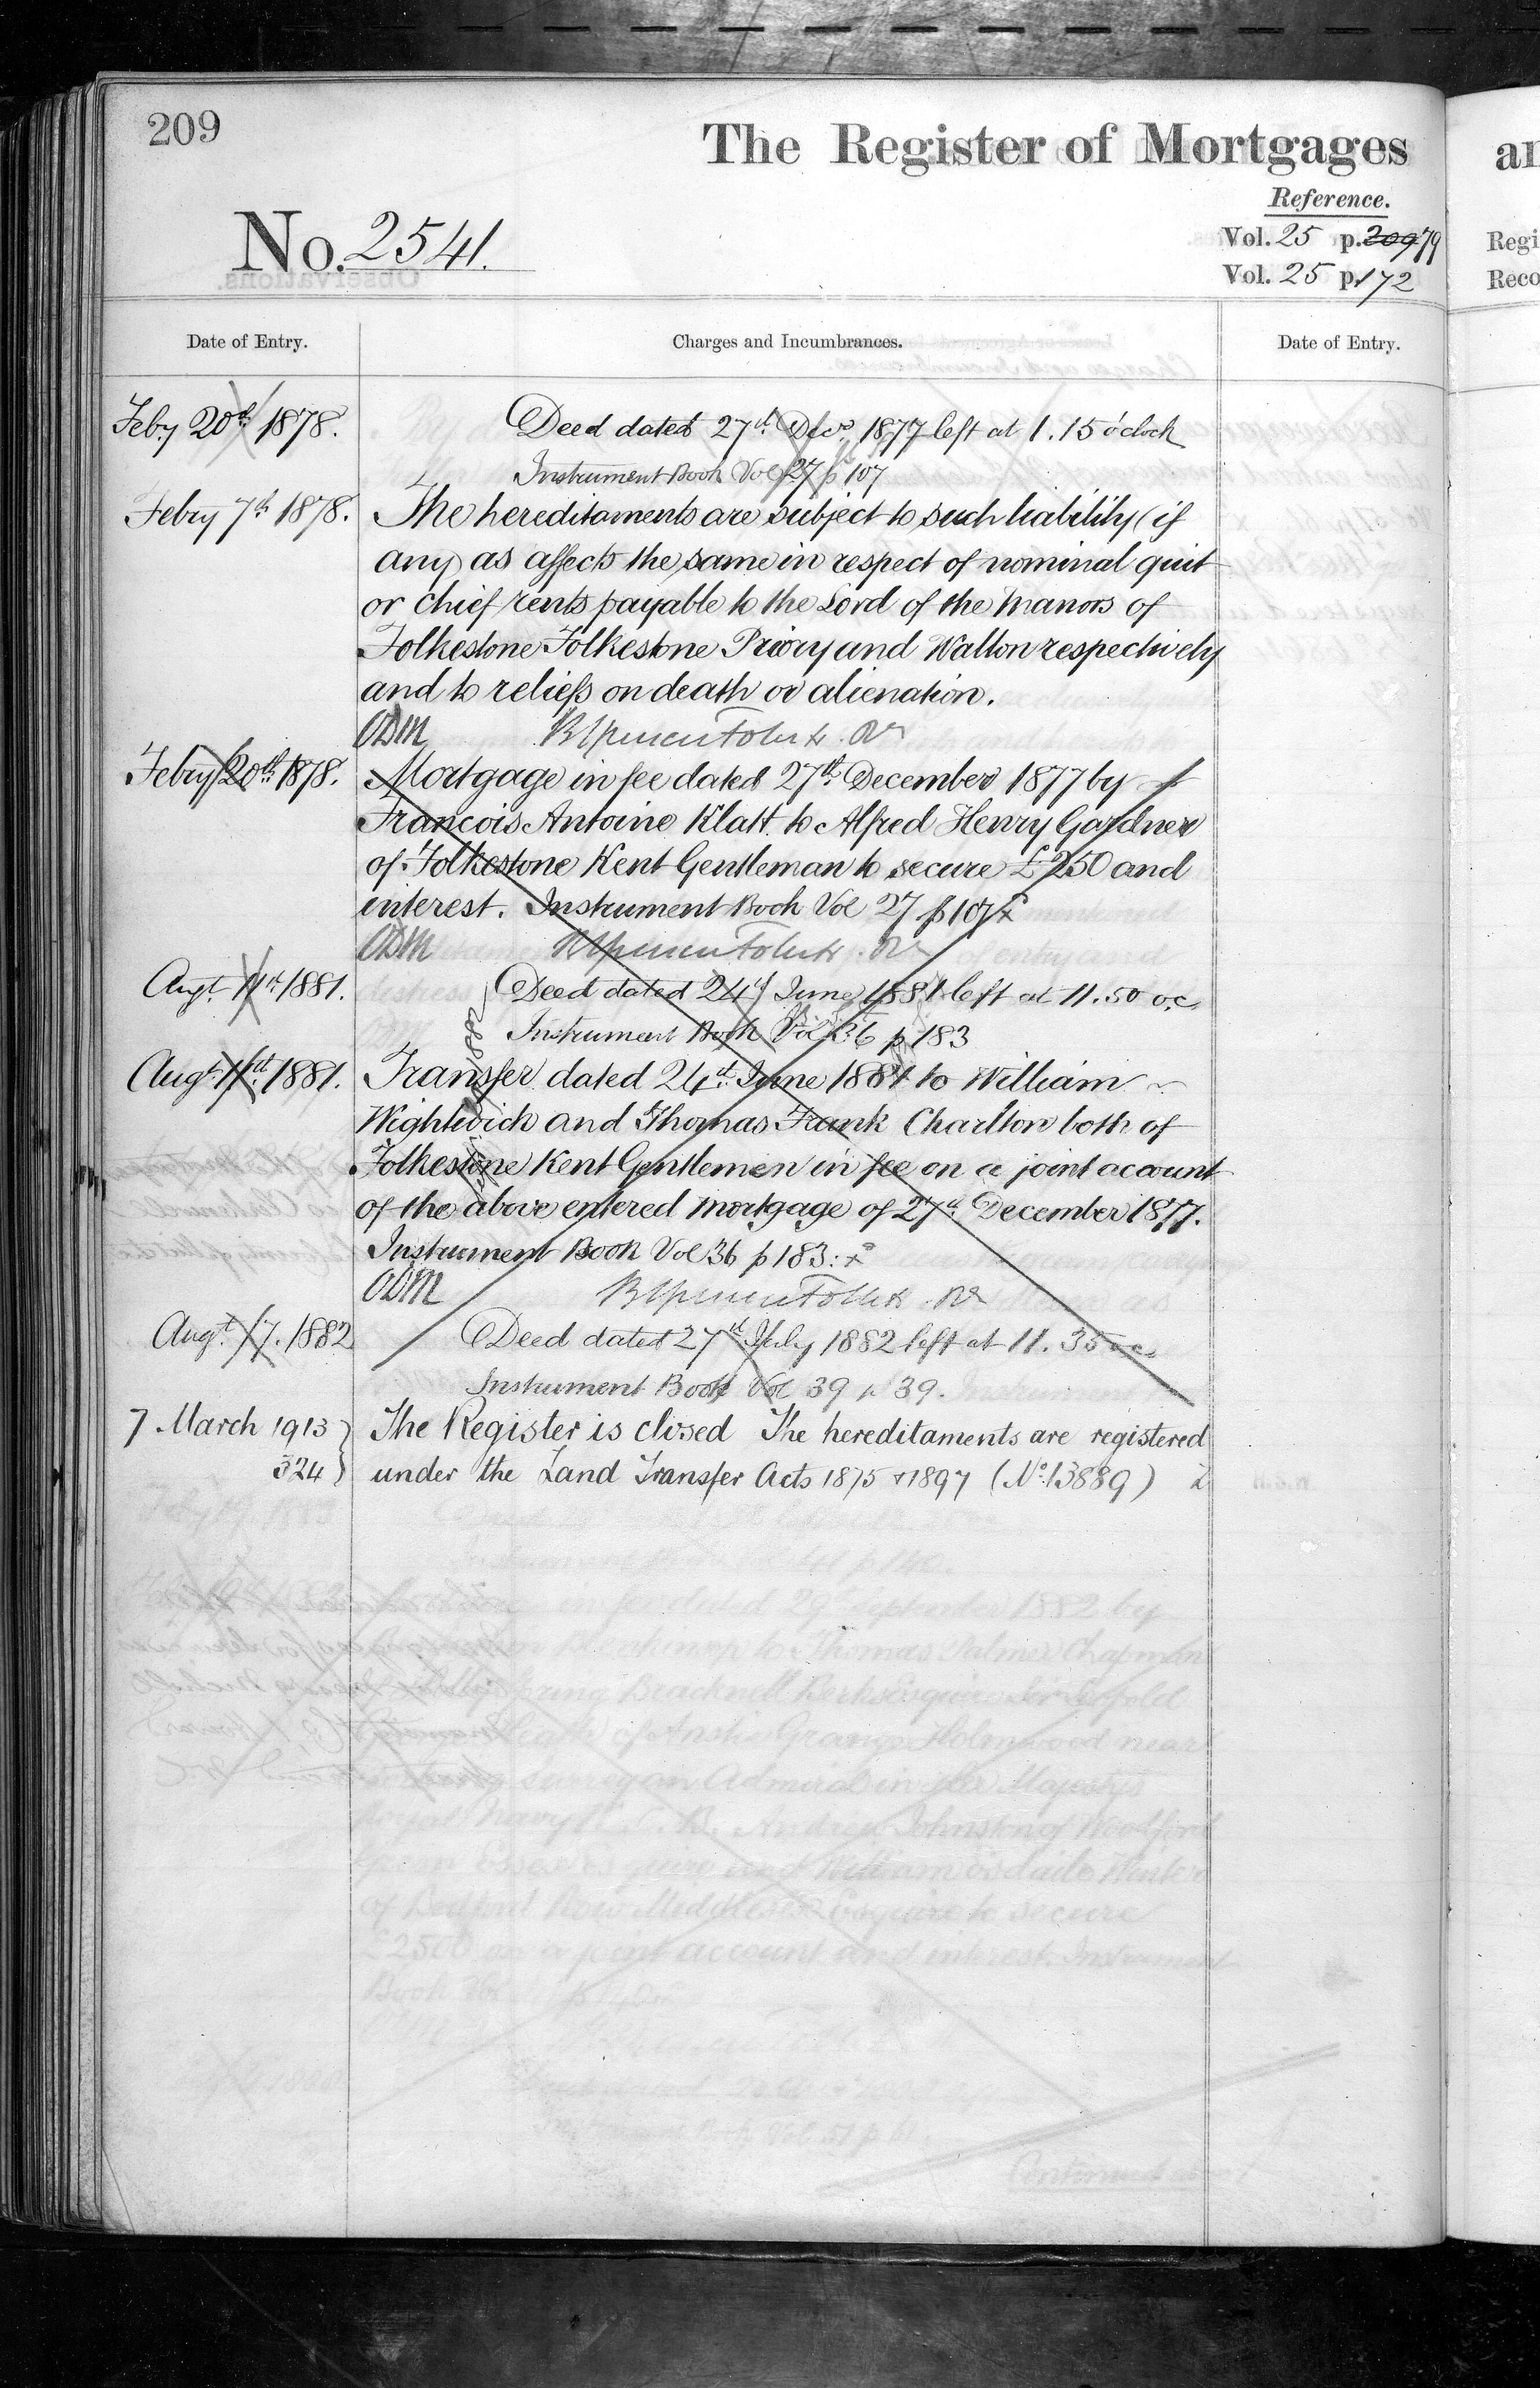 209
The Register of Mortgages
Reference.
No. 2541.
Vol. 25 p. 209 79
Vol. 25 p. 172
Regi
Reco
Date of Entry.
Charges and Incumbrances.
Date of Entry.
Feby 20th 1878.
Deed dated 27th Decr 1877 left at 1.15 o'clock
Instrument Book Vol 27 p 107
Febry 7th 1878.
The hereditaments are subject to such liability (if
any) as affects the same in respect of nominal quit
or chief rents payable to the Lord of the Manors of
Folkestone Folkestone Priory and Walton respectively
and to reliefs on death or alienation.
ODM
Febry 20th 1878.
Mortgage in fee dated 27th December 1877 by
Francois Antoine Klatt to Alfred Henry Gardner
of Folkestone Kent Gentleman to secure £250 and
interest. Instrument Book Vol 27 p 107
ODM
Augt 11th 1881.
Deed dated 24th June 1881 left at 11.50 oc
Instrument Book Vol 36 p 183
Augt 11th 1881.
Transfer dated 24th June 1881 to William
Wightwick and Thomas Frank Charlton both of
Folkestone Kent Gentlemen in fee on a joint account
of the above entered Mortgage of 27th December 1877.
Instrument Book Vol 36 p 183:
ODM
Augt 17. 1882
Deed dated 27th July 1882 left at 11.35 oc.
Instrument Book Vol 39 p 39.
7 March 1913
The Register is closed The hereditaments are registered
324
under the Land Transfer Acts 1875 & 1897 (No. 13889)